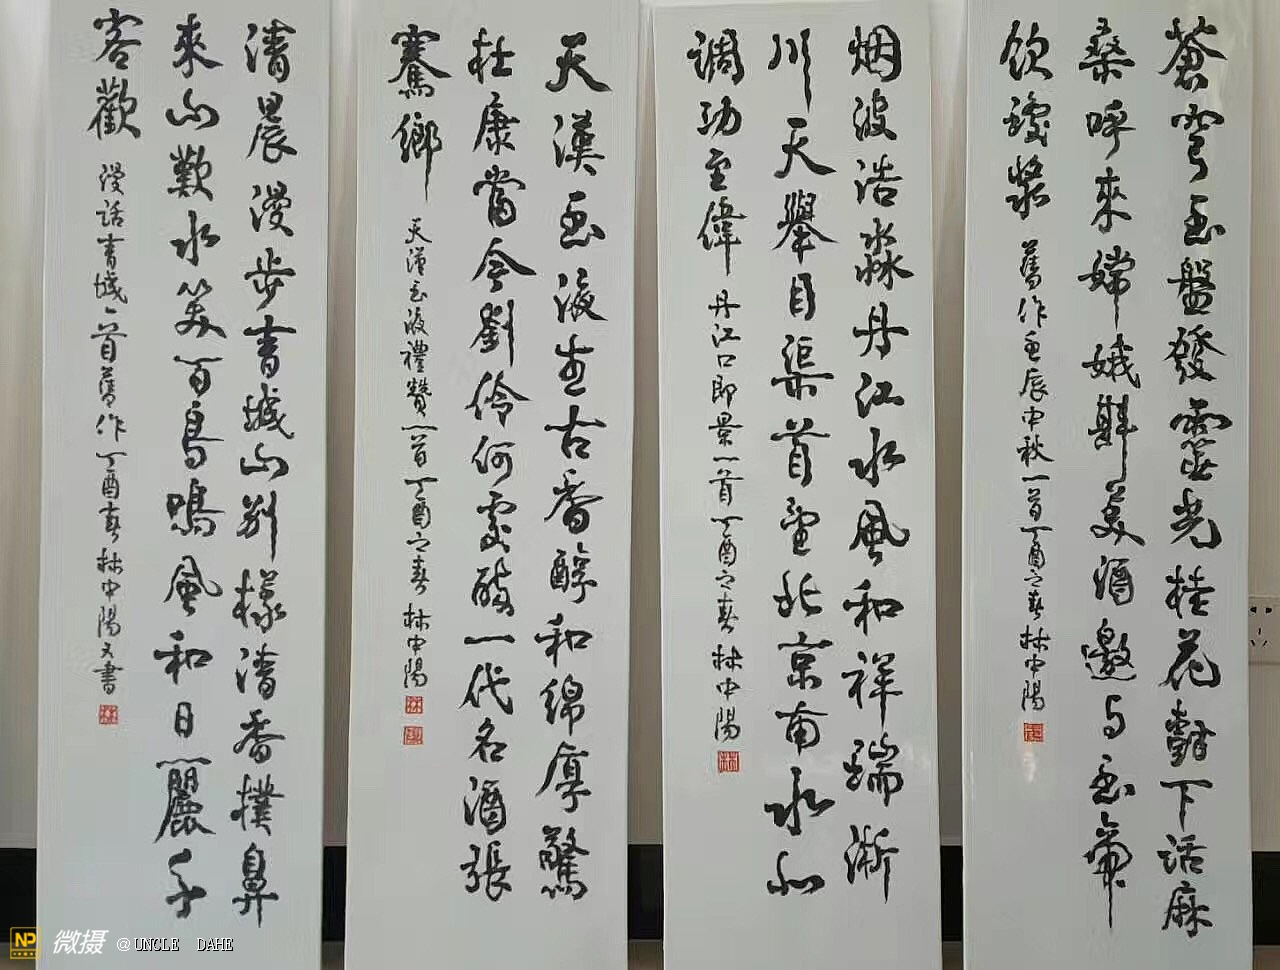 蒼穹玉盤發靈光桂花樹下話麻
桑呼來嫦娥斟美酒邀与玉帝
飲瓊漿
舊作壬辰中秋一首丁酉之春林中陽
烟波浩淼丹江水風和祥瑞淅
川天舉目渠首望北京南水北
調功至偉
丹江口即景一首丁酉之春林中陽
天漢玉液直古香醇和綿厚驚
杜康當今劉伶何處醉一代名酒張
騫鄉
天漢玉液禮贊一首丁酉之春林中陽
清晨漫步青城山別樣清香撲鼻
來山歡水笑百鳥鳴風和日麗千
客歡
漫話青城一首舊作丁酉春林中陽又書
NP 微摄 @UNCLE DAHE